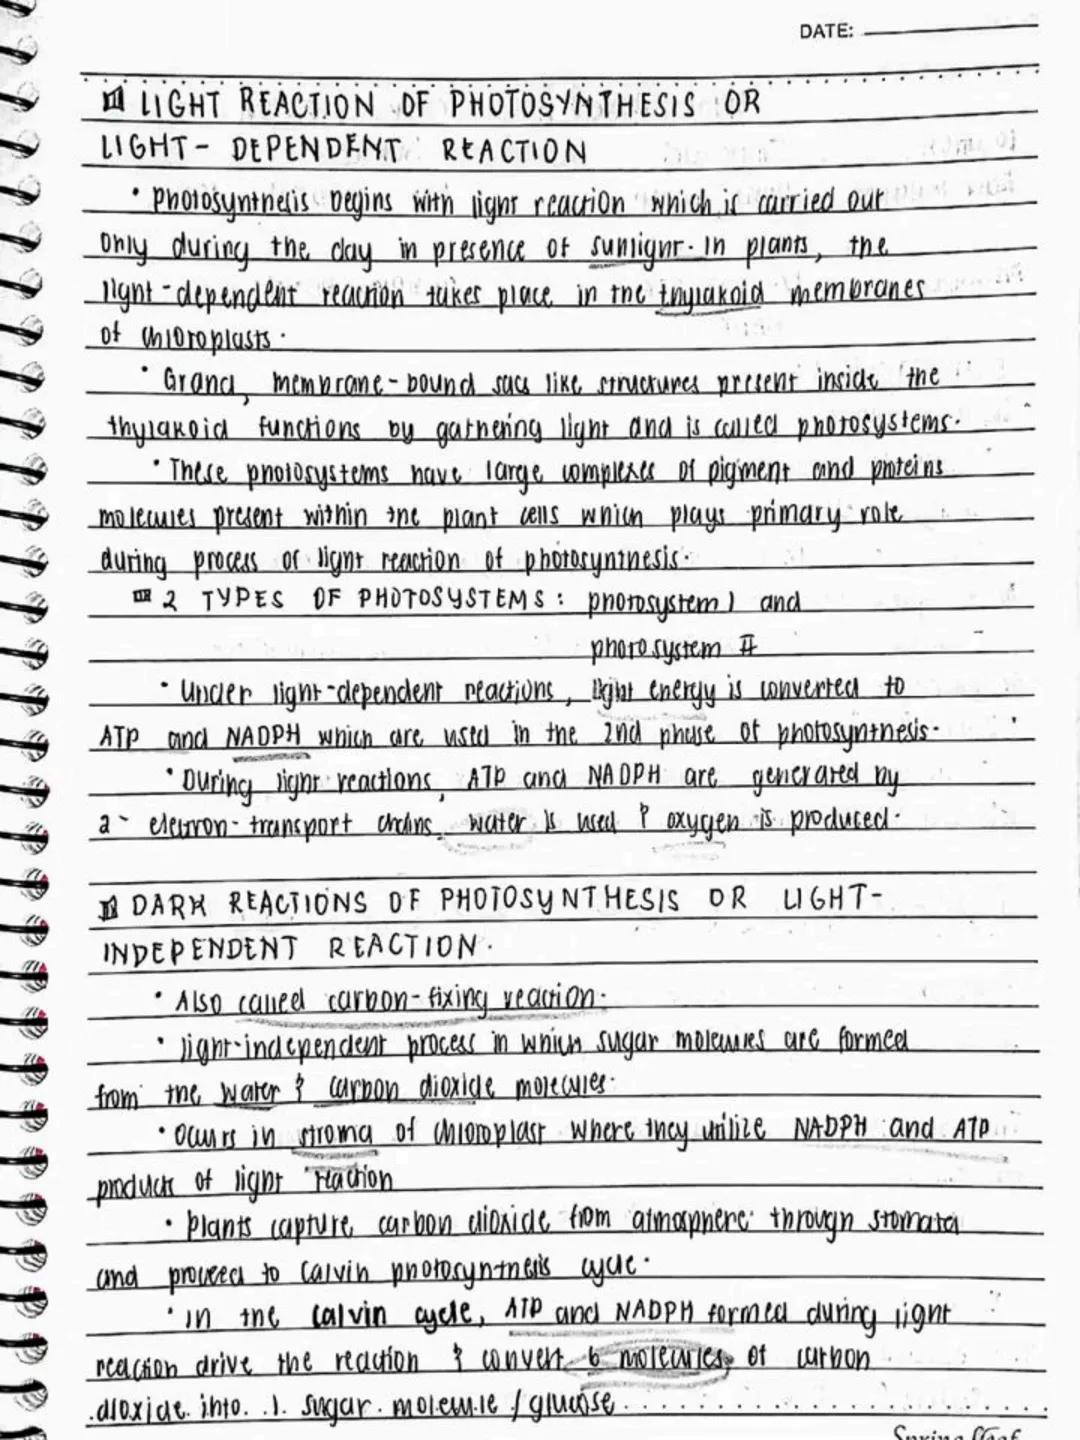 DATE:
LIGHT REACTION OF PHOTOSYNTHESIS OR
LIGHT- DEPENDENT REACTION
• Photosynthesis begins with light reaction which is carried out
only during the day in presence of sunlight. In plants, the
light-dependent reaction takes place in the thylakoid membranes
of chloroplasts.
• Grana, membrane-bound sacs like structures present inside the
thylakoid functions by gathering light and is called photosystems.
• These photosystems have large complexes of pigment and proteins
molecules present within the plant cells which plays primary role
during process of light reaction of photosynthesis.
2 TYPES OF PHOTOSYSTEMS: photosystem I and
photosystem II
• Under light-dependent reactions, light energy is converted to
ATP and NADPH which are used in the 2nd phase of photosynthesis.
• During light reactions, ATP and NADPH are generated by
2- electron-transport chains, water is used & oxygen is produced.
DARK REACTIONS OF PHOTOSYNTHESIS OR LIGHT-
INDEPENDENT REACTION.
• Also called carbon-fixing reaction.
• light-independent process in which sugar molecules are formed
from the water & carbon dioxide molecules.
• Occurs in stroma of chloroplast where they utilize NADPH and ATP
products of light reaction
• Plants capture carbon dioxide from atmosphere through stomata
and proceed to Calvin photosynthesis cycle.
• In the Calvin cycle, ATP and NADPH formed during light
reaction drive the reaction & convert 6 molecules of carbon
dioxide into 1 sugar molecule / glucose
Spring Leaf